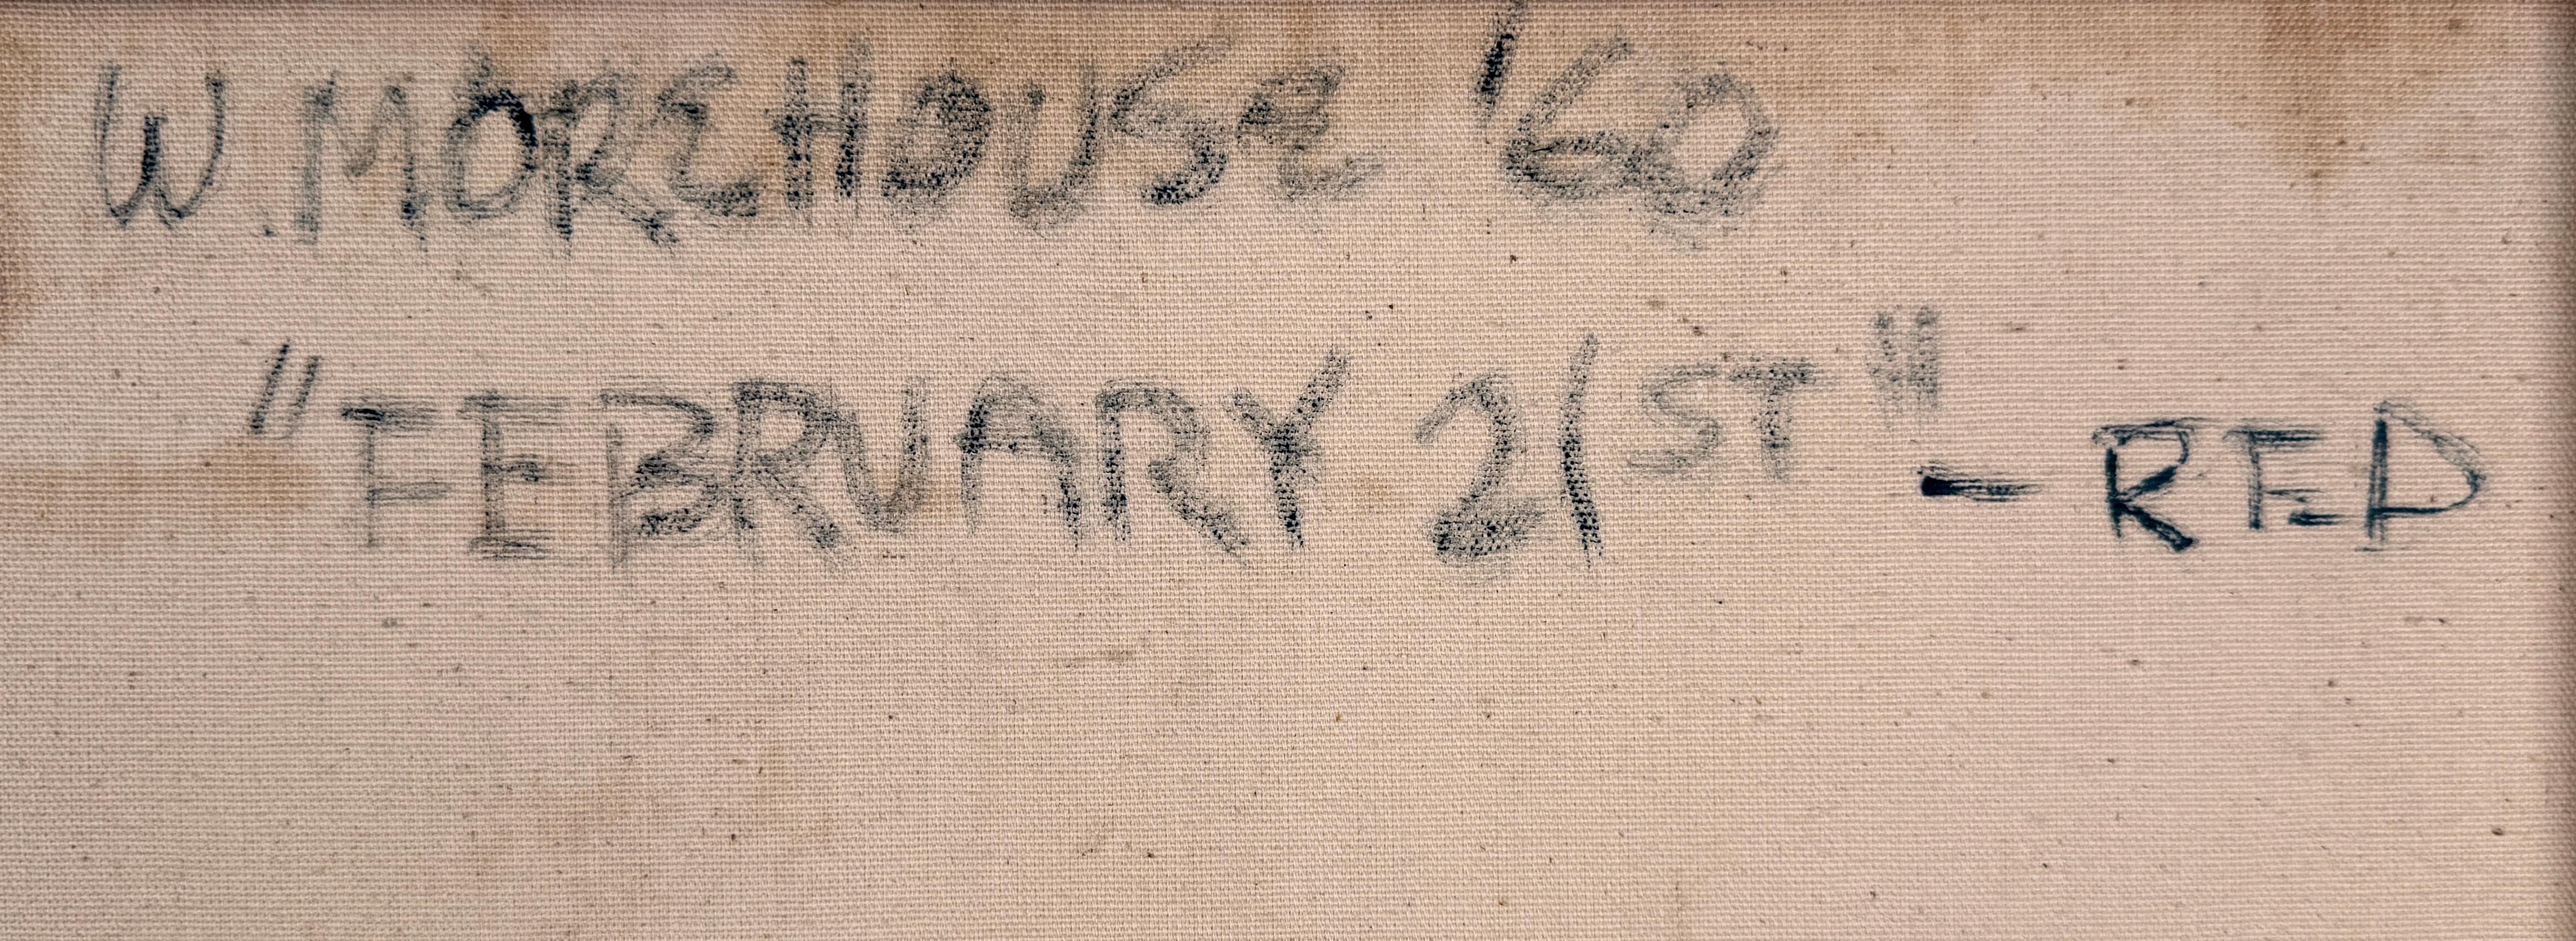 W. MOREHOUSE '60
"FEBRUARY 21ST" - RED